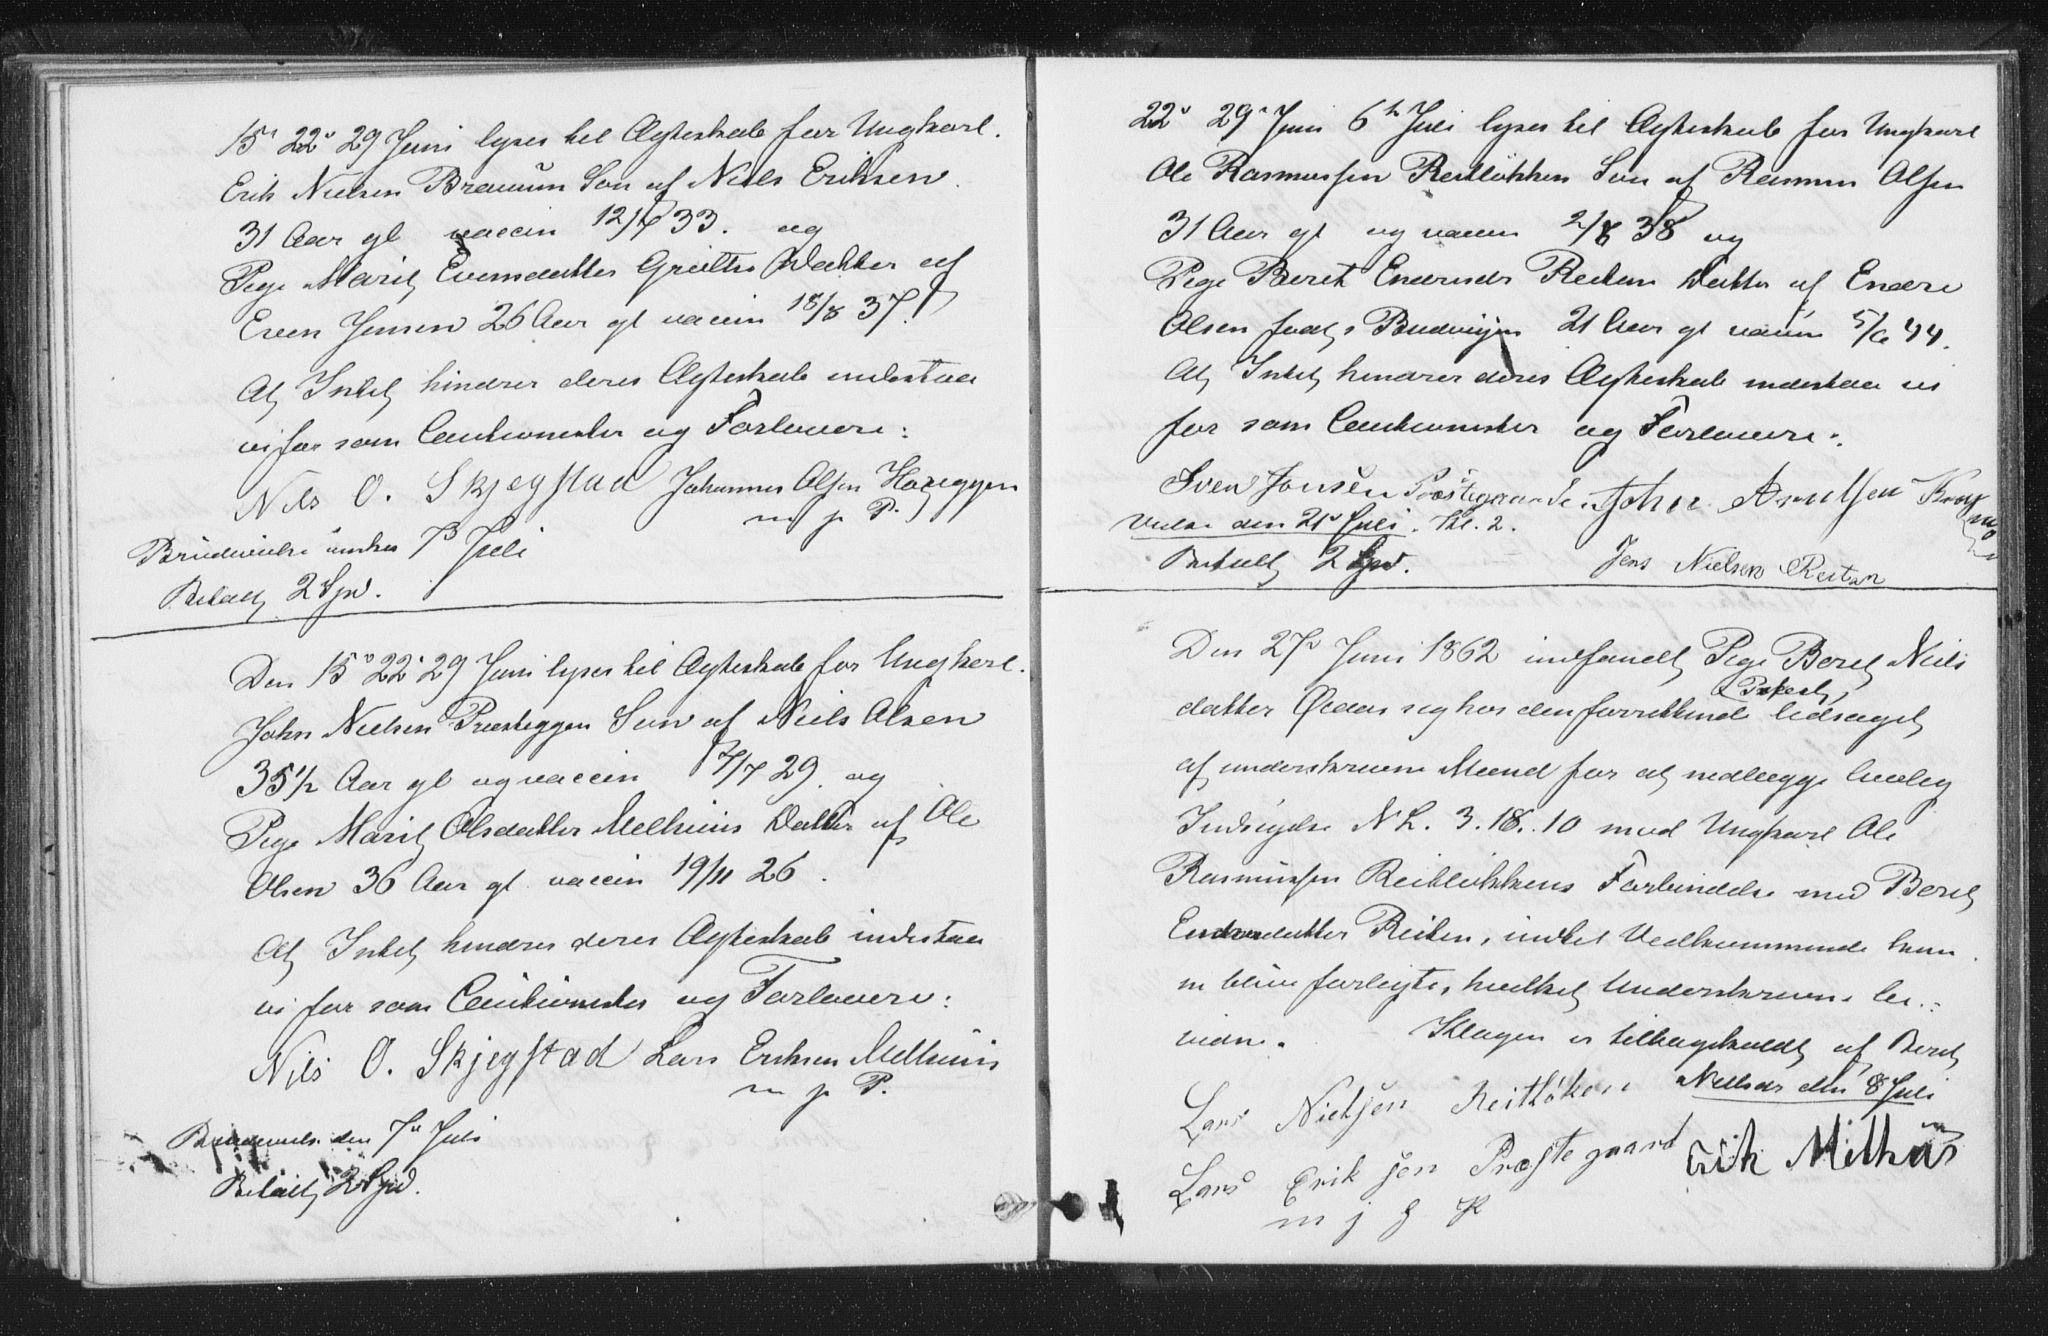 15' 22' 29 Juni lyses til Ægteskab for Ungkarl.
Erik Nielsen Søn af Niels Eriksen
31 Aar gl vaccin 12/7 33. og
Pige Marit Evensdatter Datter af
Even Jensen 26 Aar gl vaccin 18/8 37.
At Intet hindrer deres Ægteskab indestaa
vi for som Cautionister og Forlovere:
Nils O. Skjegstad Johannes Olsen Hageggen
m p P.
Brudevielse 7 Juli
Betalt 2 Spd.
Den 15' 22' 29 Juni lyses til Ægteskab for Ungkarl.
John Nielsen Præsteggen Søn af Niels Olsen
35 1/2 Aar gl og vaccin 7/7 29. og
Pige Marit Olsdatter Melhuus Datter af Ole
Olsen 36 Aar gl. vaccin 19/11 26.
At Intet hindrer deres Ægteskab indestaa
vi for som Cautionister og Forlovere:
Nils O. Skjegstad Lars Eriksen Melhuus
m p P.
Brudevielse den 7' Juli
Betalt 2 Spd.
22' 29' Juni 6' Juli lyses til Ægteskab for Ungkarl
Ole Rasmussen Reitløkken Søn af Rasmus Olsen
31 Aar gl og vaccin 2/8 38 og
Pige Beret Endresdr Reiten Datter af Endre
Olsen født i Budvigen 21 Aar gl vaccin 5/6 44.
At Intet hindrer deres Ægteskab indestaa vi
for som Cautionister og Forlovere:
Sven Jonsen Præstegaard John Arntsen
Vielse den 21' Juli. Kl. 2.
Betalt 2 Spd. Jens Nielsen Reitan
Den 27' Juni 1862 indfandt Pige Beret Niels
datter Ødaas sig hos den forrettende Præst, ledsaget
af underskrevne Mænd for at nedlægge lovlig
Indsigelse N L. 3. 18. 10 mod Ungkarl Ole
Rasmussen Reitløkkens Forbindelse med Beret
Endresdatter Reiten, indtil Vedkommende kan
blive forligte, hvilket Underskrevne be-
vidne. Klagen er tilbagekaldt af Beret
Nielsdr den 8' Juli
Lars Nielsen Reitløken
Lars Eriksen Præstegaard Erik Melhus
m j g P